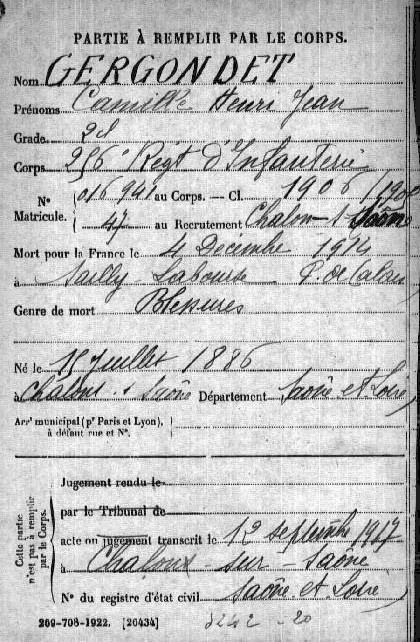 PARTIE À REMPLIR PAR LE CORPS.
Nom GERGONDET
Prénoms Camille Henri Jean
Grade 2d
Corps 256e Régt d'Infanterie
N° Matricule. 016941 au Corps. — Cl. 1906 (1906
47 au Recrutement Chalon-s-Saône
Mort pour la France le 4 Décembre 1914
à Sailly Labourse P. de Calais
Genre de mort Blessures
Né le 15 Juillet 1886
à Chalons s Saône Département Saône et Loire
Arrt municipal (pr Paris et Lyon), à défaut rue et N°.
Cette partie n'est pas à remplir par le Corps.
Jugement rendu le
par le Tribunal de
acte ou jugement transcrit le 12 septembre 1917
à Chalon - sur - Saône
N° du registre d'état civil Saône et Loire
269-708-1922. [26434]